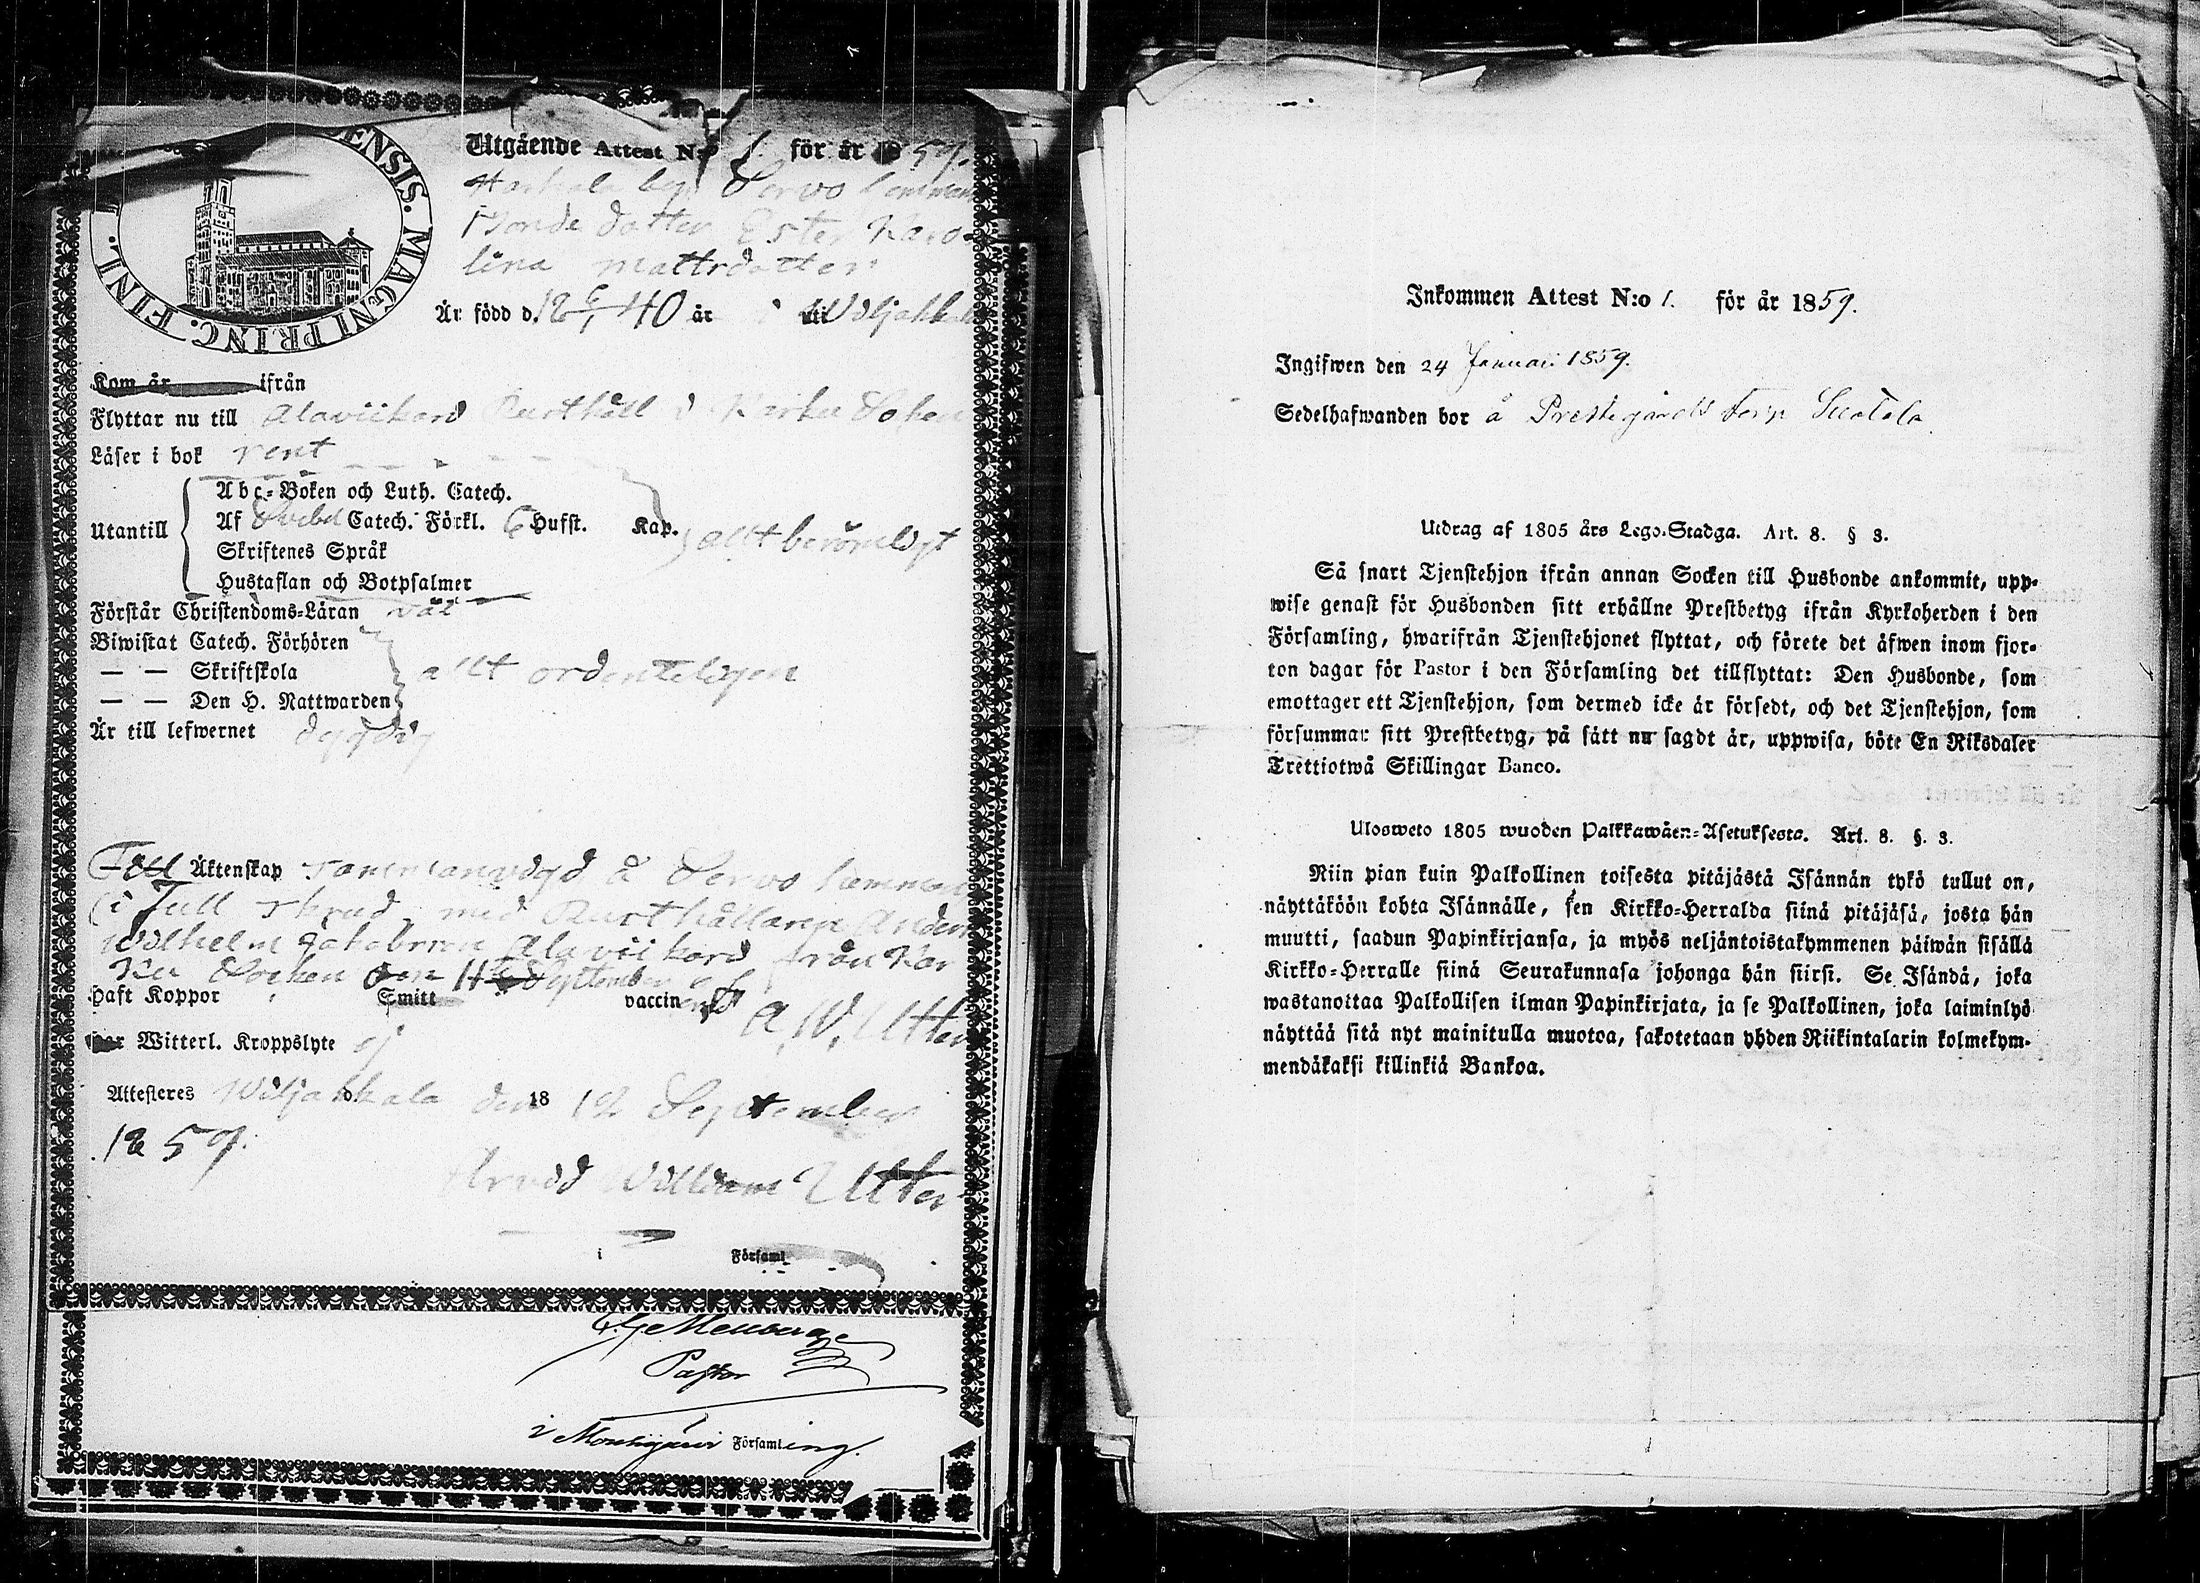 ENSIS. MAGNI PRINC. FINL.
Utgående Attest N:o 1. för år 1859.
Bonde dotter Ester Karo-
lina Mattsdotter
Är född d. 18 6/1 40 år i Wiljakkala
Kom år ifrån
Flyttar nu till Alaviikari Rusthåll i Karku Soken
Läser i bok rent
Utantill
Abc-Boken och Luth. Catech.
Af Svebel Catech. Förkl. 6 Hufst. Kap. allt berömligt
Skriftenes Språk
Hustaflan och Botpsalmer
Förstår Christendoms-Läran väl
Biwistat Catech. Förhören
— — Skriftskola allt ordenteligen
— — Den H. Nattwarden
Är till lefwernet dygdig
Till Äktenskap sammanvigd å Servo hemman
i full skrud med Rusthållaren Anders
Wilhelm Jakobsson Alaviikari från Kar
ku Socken den 11 September
Haft Koppor Smitt vaccin A. W. Utter
har Witterl. Kroppslyte ej
Attesteres Wiljakkala den 18 12 September
1859.
Arvid William Utter
i Församl
Pastor
i Mouhijärvi Församling.
Inkommen Attest N:o 1. för år 1859.
Ingifwen den 24 Januari 1859.
Sedelhafwanden bor å Prestegårds torp
Utdrag af 1805 års Lego-Stadga. Art. 8. § 3.
Så snart Tjenstehjon ifrån annan Socken till Husbonde ankommit, upp-
wise genast för Husbonden sitt erhållne Prestbetyg ifrån Kyrkoherden i den
Församling, hwarifrån Tjenstehjonet flyttat, och förete det äfwen inom fjor-
ton dagar för Pastor i den Församling det tillflyttat: Den Husbonde, som
emottager ett Tjenstehjon, som dermed icke är försedt, och det Tjenstehjon, som
försummar sitt Prestbetyg, på sätt nu sagdt är, uppwisa, böte En Riksdaler
Trettiotwå Skillingar Banco.
Ulosweto 1805 wuoden Palkkawäen-Asetuksesta. Art. 8. §. 3.
Niin pian kuin Palkollinen toisesta pitäjästä Isännän tykö tullut on,
näyttäköön kohta Isännälle, sen Kirkko-Herralda siinä pitäjäsä, josta hän
muutti, saadun Papinkirjansa, ja myös neljäntoistakymmenen päiwän sisällä
Kirkko-Herralle siinä Seurakunnasa johonga hän siirsi. Se Isändä, joka
wastanottaa Palkollisen ilman Papinkirjata, ja se Palkollinen, joka laiminlyö
näyttää sitä nyt mainitulla muotoa, sakotetaan yhden Riikintalarin kolmekym-
mendäkaksi killinkiä Bankoa.